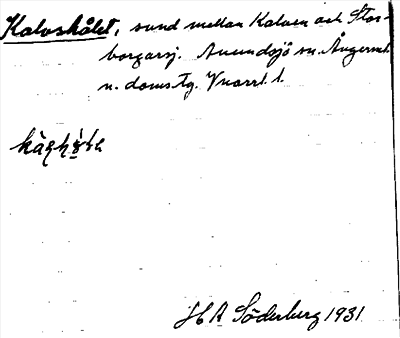 Kalvskålet, sund mellan Kalven och Stor-
borgarsj. Anundsjö sn. Ångerml.
n. doms.tg. Vnorrl. l.
H A Söderberg 1931